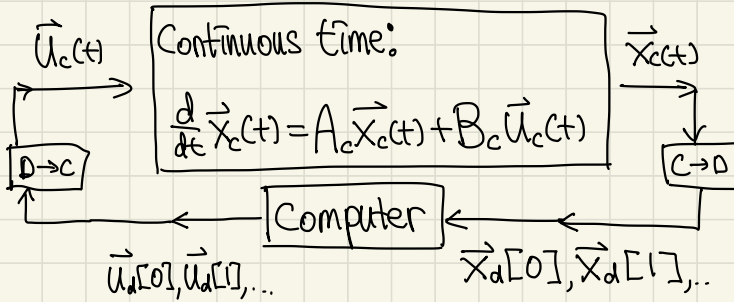 u⃗_c(t)
Continuous time:
x⃗_c(t)
d/dt x⃗_c(t) = A_c x⃗_c(t) + B_c u⃗_c(t)
D→C
C→D
Computer
u⃗_d[0], u⃗_d[1], ...
x⃗_d[0], x⃗_d[1], ..